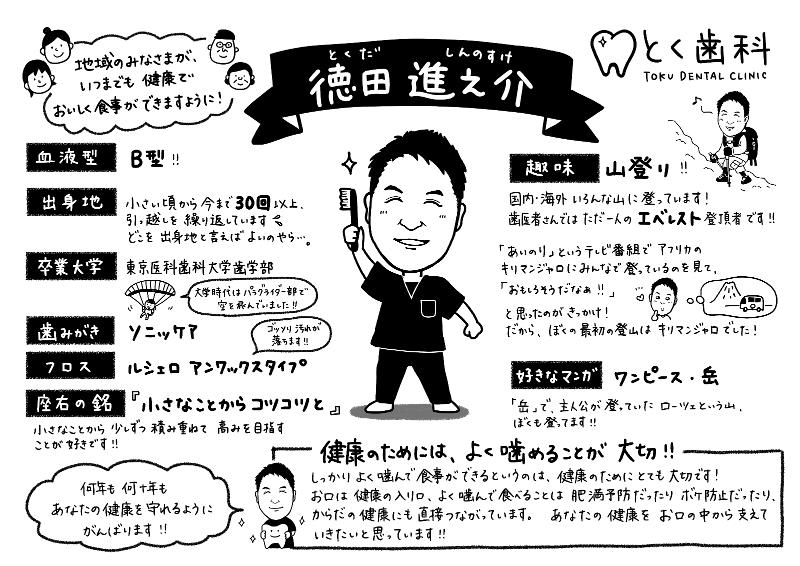 地域のみなさまが、
いつまでも 健康で
おいしく食事ができますように！
とくだ しんのすけ
徳田 進之介
とく歯科
TOKU DENTAL CLINIC
血液型 B型 !!
出身地 小さい頃から今まで30回以上、
引っ越しを繰り返しています
どこを出身地と言えばよいのやら…。
卒業大学 東京医科歯科大学歯学部
大学時代はパラグライダー部で
空を飛んでいました!!
歯みがき ソニッケア
ゴッソリ汚れが
落ちます!!
フロス ルシェロ アンワックスタイプ
座右の銘 『小さなことからコツコツと』
小さなことから少しずつ積み重ねて 高みを目指す
ことが好きです!!
趣味 山登り !!
国内・海外 いろんな山に登っています！
歯医者さんではただ一人のエベレスト登頂者です!!
「あいのり」というテレビ番組でアフリカの
キリマンジャロにみんなで登っているのを見て、
「おもしろそうだなぁ!!」
と思ったのがきっかけ！
だから、ぼくの最初の登山はキリマンジャロでした！
好きなマンガ ワンピース・岳
「岳」で、主人公が登っていた ローツェという山、
ぼくも登ってます!!
何年も何十年も
あなたの健康を守れるように
がんばります!!
健康のためには、よく噛めることが 大切!!
しっかりよく噛んで食事ができるというのは、健康のためにとても大切です！
お口は健康の入り口、よく噛んで食べることは 肥満予防だったり ボケ防止だったり、
からだの健康にも直接つながっています。 あなたの健康を お口の中から支えて
いきたいと思っています!!